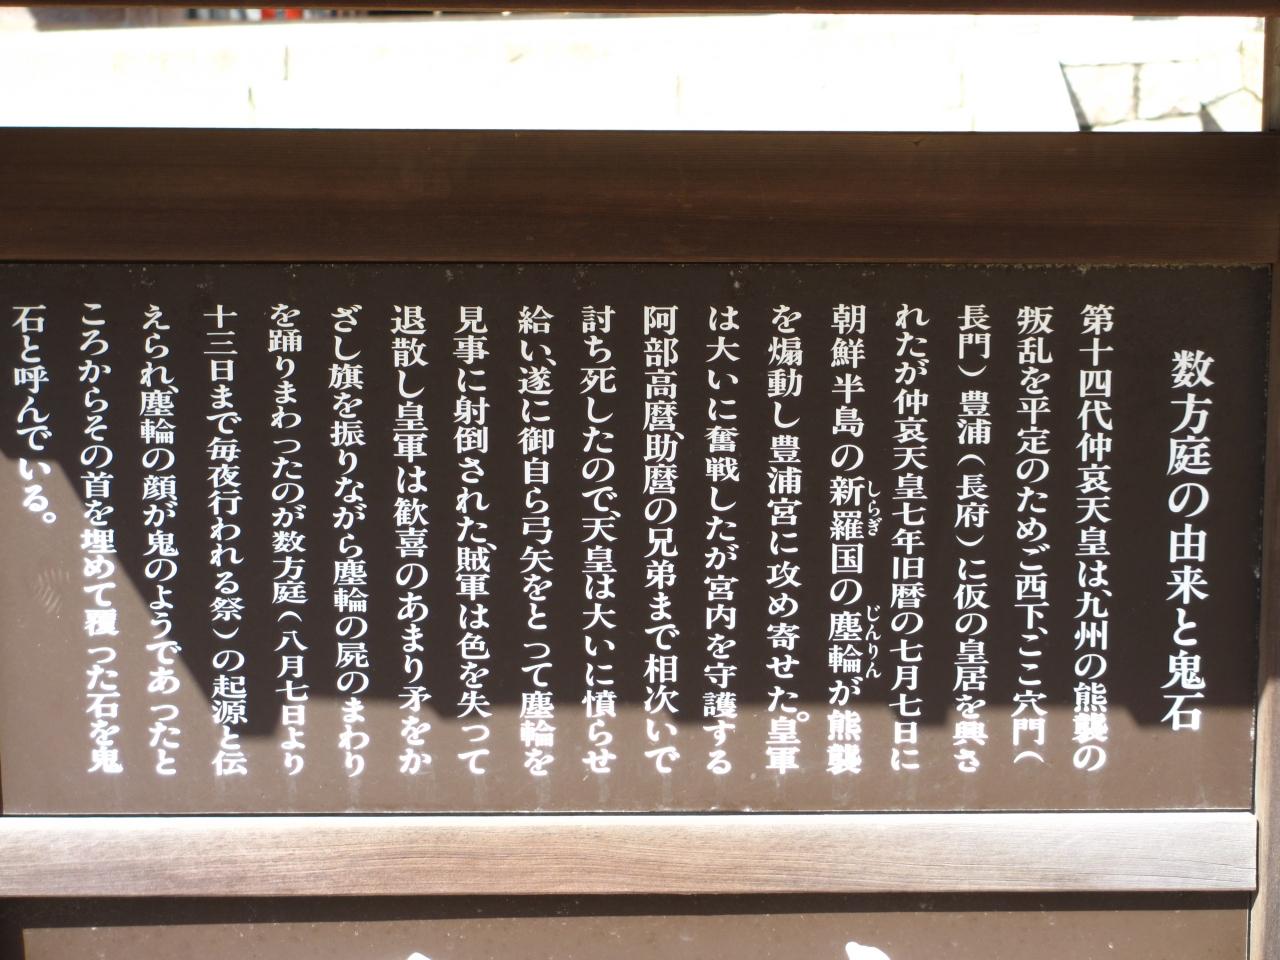 数方庭の由来と鬼石
第十四代仲哀天皇は、九州の熊襲の
叛乱を平定のためご西下、ここ穴門(
長門)豊浦(長府)に仮の皇居を興さ
れたが仲哀天皇七年旧暦の七月七日に
朝鮮半島の新羅国の塵輪が熊襲
しらぎ
じんりん
を煽動し豊浦宮に攻め寄せた。皇軍
は大いに奮戦したが宮内を守護する
阿部高麿、助麿の兄弟まで相次いで
討ち死したので、天皇は大いに憤らせ
給い、遂に御自ら弓矢をとって塵輪を
見事に射倒された、賊軍は色を失って
退散し皇軍は歓喜のあまり矛をか
ざし旗を振りながら塵輪の屍のまわり
を踊りまわったのが数方庭(八月七日より
十三日まで毎夜行われる祭)の起源と伝
えられ、塵輪の顔が鬼のようであったと
ころからその首を埋めて覆った石を鬼
石と呼んでいる。